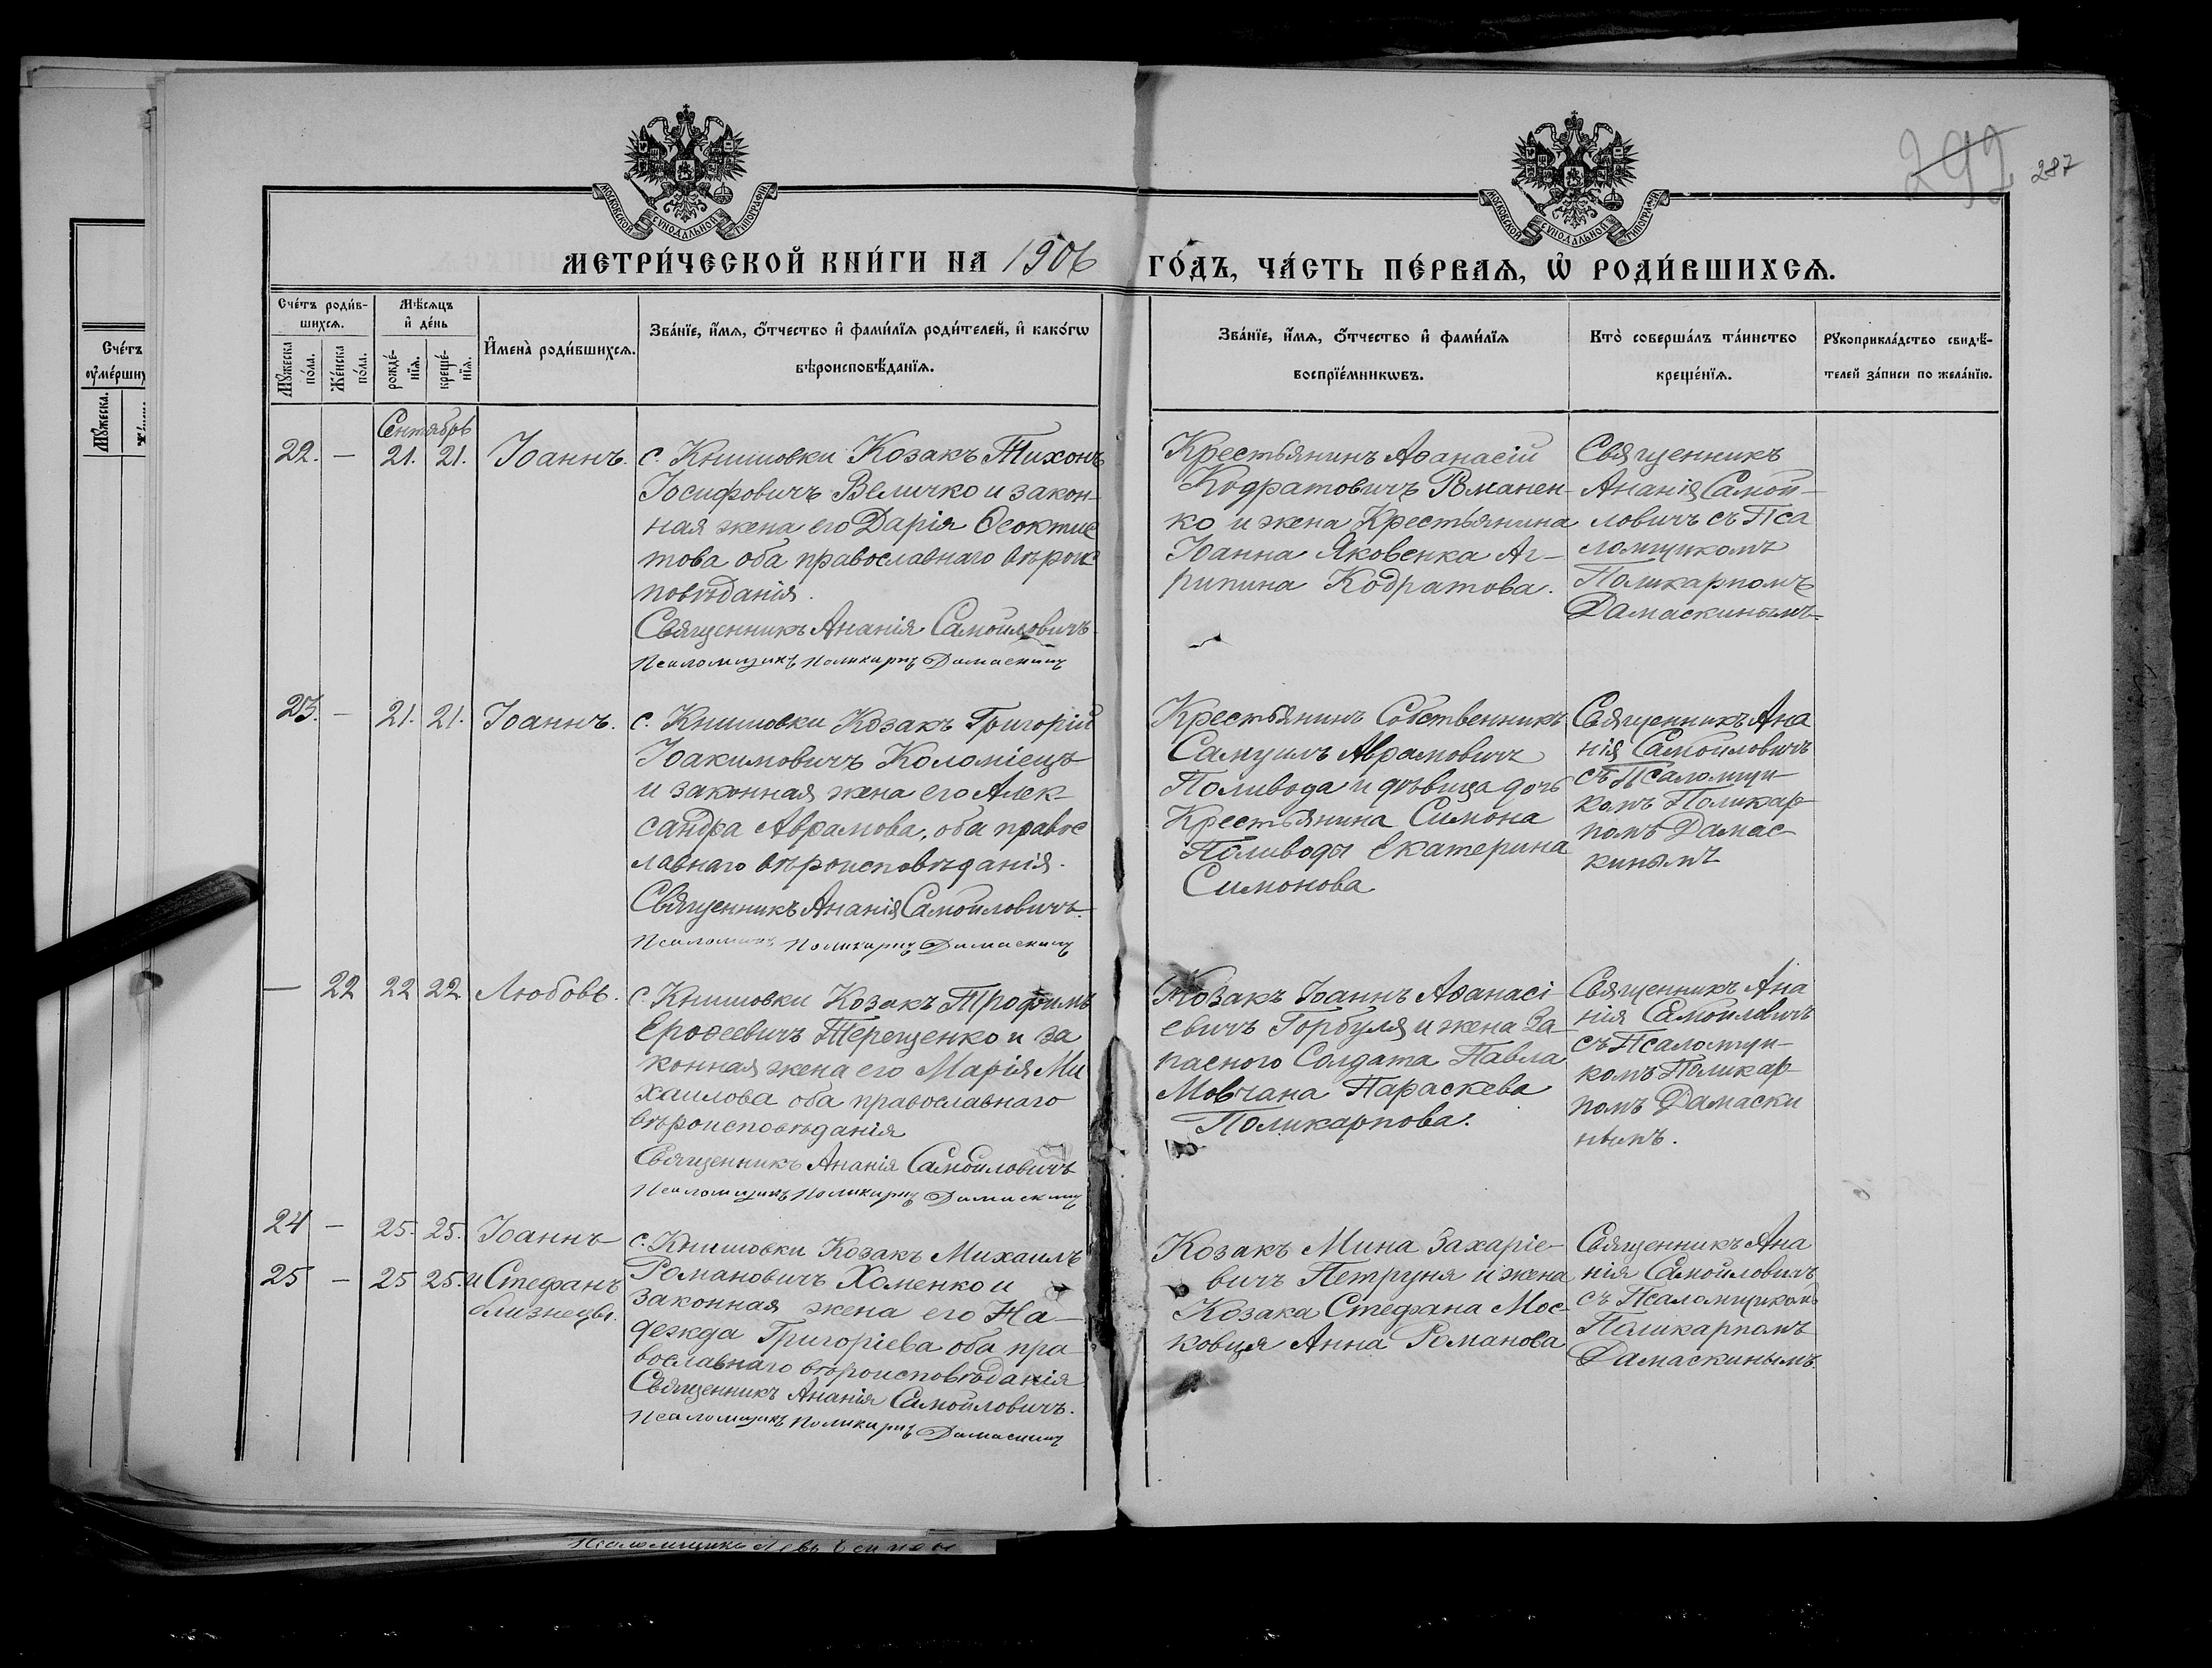 292 287
МОСКОВСКОЙ СѴНОДАЛЬНОЙ ТИПОГРАФІИ
МОСКОВСКОЙ СѴНОДАЛЬНОЙ ТИПОГРАФІИ
МЕТРИ́ЧЕСКОЙ КНИ́ГИ НА 1906
ГО́ДЪ, ЧА́СТЬ ПЕ́РВАѦ, Ѡ҆ РОДИ́ВШИХСѦ.
Сче́тъ роди́в-
шихсѧ.
Мѣ́сѧцъ
и҆ де́нь
И҆мена̀ роди́вшихсѧ.
Зва́нїе, и҆́мѧ, ѻ҆́тчество и҆ фами́лїѧ роди́телей, и҆ како́гѡ
вѣроисповѣ́данїѧ.
Мꙋ́жеска
по́ла.
Же́нска
по́ла.
рожде́-
нїѧ.
креще́-
нїѧ.
Зва́нїе, и҆́мѧ, ѻ҆́тчество и҆ фами́лїѧ
воспрїе́мникѡвъ.
Кто̀ соверша́лъ та́инство
креще́нїѧ.
Рꙋкоприкла́дство свидѣ́-
телей за́писи по жела́нїю.
Сче́тъ
ᲂу҆ме́рших
Мꙋ́жеска.
Сентябрь
22. — 21. 21. Іоаннъ.
с. Книшовки Козакъ Тихонъ
Іосифовичъ Величко и закон-
ная жена его Дарія Ѳеоктис
това оба православнаго вѣроис
повѣданія.
Священникъ Ананія Самойловичъ
Псаломщикъ Поликарпъ Дамаскинъ
Крестьянинъ Аѳанасій
Кодратовичъ Романен-
ко и жена Крестьянина
Іоанна Яковенка Аг-
рипина Кодратова.
Священникъ
Ананія Самой-
ловичъ съ Пса
ломщикомъ
Поликарпомъ
Дамаскинымъ
23. — 21. 21. Іоаннъ.
с. Книшовки Козакъ Григорій
Іоакимовичъ Коломіецъ
и законная жена его Алек-
сандра Аврамова, оба правос
лавнаго вѣроисповѣданія.
Священникъ Ананія Самойловичъ.
Псаломщикъ Поликарпъ Дамаскинъ
Крестьянинъ Собственникъ
Самуилъ Аврамовичъ
Поливода и дѣвица дочь
Крестьянина Симона
Поливоды Екатерина
Симонова
Священникъ Ана
нія Самойловичъ
съ Псаломщи-
комъ Поликар-
помъ Дамас-
кинымъ
— 22 22 22 Любовь.
с. Книшовки Козакъ Трофимъ
Ероѳеевичъ Терещенко и за
конная жена его Марія Ми
хаилова оба православнаго
вѣроисповѣданія
Священникъ Ананія Самойловичъ
Псаломщикъ Поликарпъ Дамаскинъ
Козакъ Іоаннъ Аѳанасі-
евичъ Горбуля и жена За-
паснаго Солдата Павла
Мовчана Параскева
Поликарпова.
Священникъ Ана
нія Самойловичъ
съ Псаломщи-
комъ Поликар-
помъ Дамаски
нымъ.
24 — 25. 25. Іоаннъ
25 — 25 25. и Стефанъ
близнецы.
с. Книшовки Козакъ Михаилъ
Романовичъ Хоменко и
законная жена его На-
дежда Григоріева оба пра
вославнаго вѣроисповѣданія
Священникъ Ананія Самойловичъ.
Псаломщикъ Поликарпъ Дамаскинъ
Козакъ Мина Захаріе-
вичъ Петруня и жена
Козака Стефана Мос-
ковця Анна Романова
Священникъ Ана
нія Самойловичъ
съ Псаломщикомъ
Поликарпомъ
Дамаскинымъ
Псаломщикъ